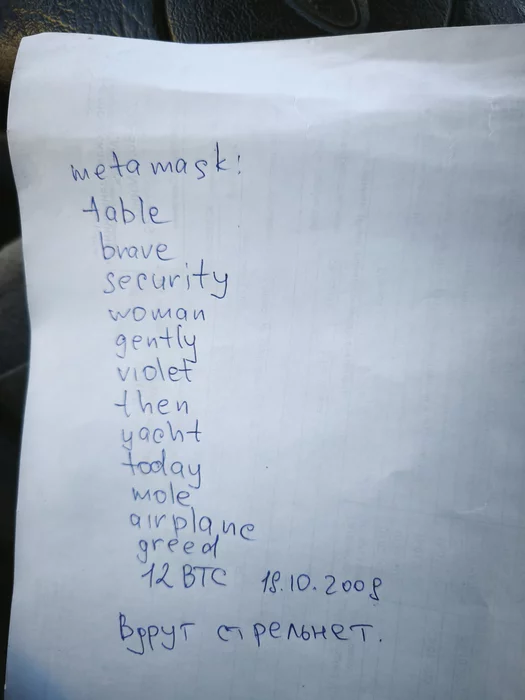 metamask:
table
brave
security
woman
gently
violet
then
yacht
today
mole
airplane
greed
12 BTC 18.10.2009
Вдруг стрельнет.